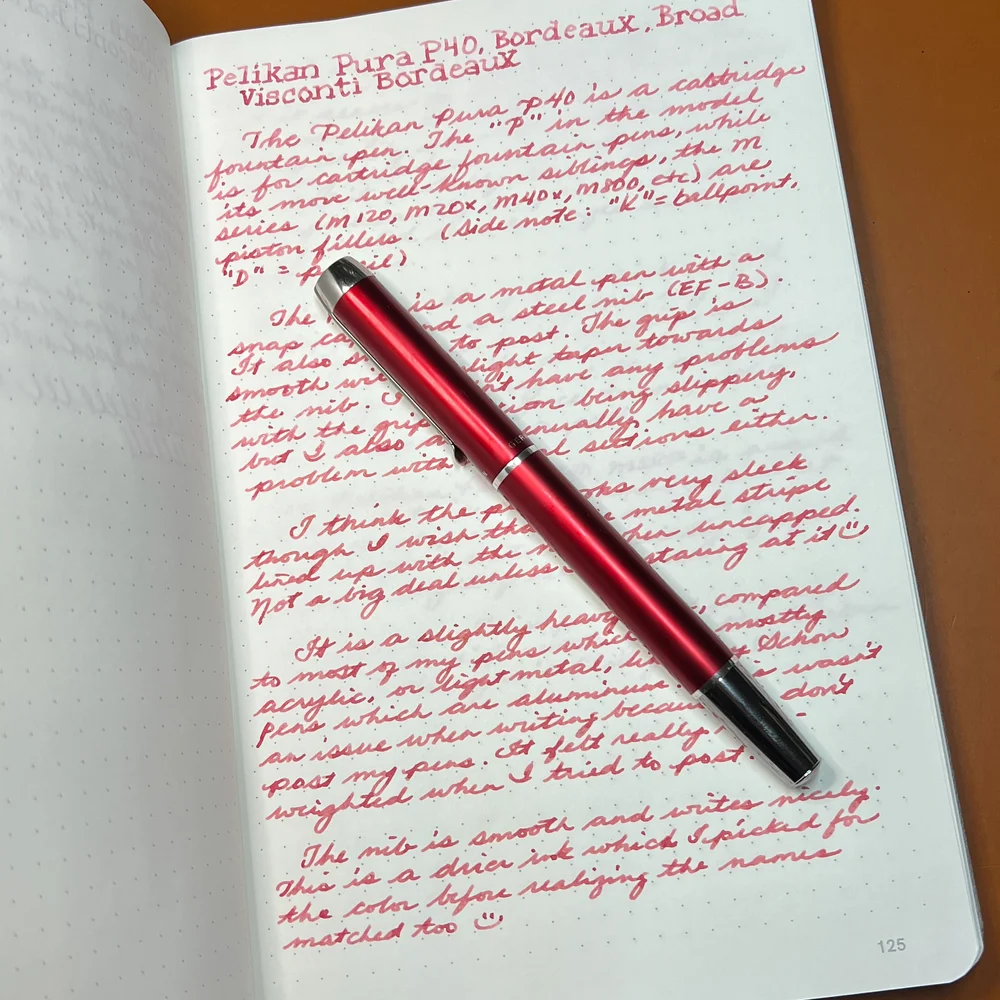 Pelikan Pura P40, Bordeaux, Broad
Visconti Bordeaux
The Pelikan Pura P40 is a cartridge
fountain pen. The "P" in the model
is for cartridge fountain pens, while
its more well-known siblings, the M
series (M120, M20x, M40x, M800, etc) are
piston fillers. (Side note: "K" = ballpoint,
"D" = pencil)
The is a metal pen with a
snap and a steel nib (EF-B).
It also to post. The grip is
smooth slight taper towards
the nib. have any problems
with the grip being slippery,
but I also generally have a
problem with sections either.
I think the looks very sleek
though I wish metal stripe
lined up with the when uncapped.
Not a big deal unless staring at it
It is a slightly heavy, compared
to most of my pens which mostly
acrylic, or light metal, Schon
pens which are aluminum wasn't
an issue when writing don't
post my pens. It felt really
weighted when I tried to post.
The nib is smooth and writes nicely.
This is a drier ink which I picked for
the color before realizing the names
matched too
125